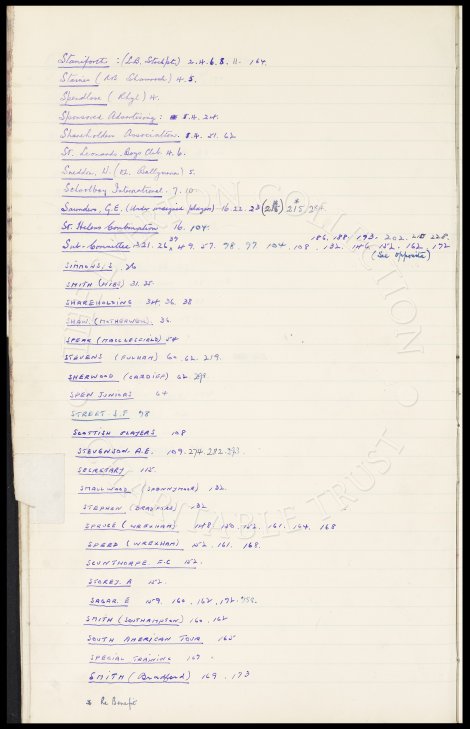 Staniforth : (L.B. Stockpt.) 2.4.6.8. 11. 164.
Stainer ( ) 4.5.
Spendlove ( Rhyl ) 4.
Sponsored Advertising : 5.4. 24.
Shareholders Association. 5.4. 51. 62
St. Leonards Boys Club. 4. 6.
Snedden, N. ( Ballymena ) 5.
Schoolboy International. 7. 10.
Saunders, G.E. ( player) 16. 22. 23 (216) 215*
St. Helens Combination 16. 104.
186. 188. 193. 202. 215 228.
Sub-Committee 21. 26. 39 49. 57. 78. 97. 104. 108. 132. 146. 152. 162. 172
(See opposite)
SIMMONS. S. 26
SMITH (HIBS) 31. 35.
SHAREHOLDING 34. 36. 38
SHAW (MOTHERWELL) 36.
SPEAR (MACCLESFIELD) 54
STEVENS (FULHAM) 60. 62. 219.
SHERWOOD (CARDIFF) 62. 298.
SPEN JUNIORS 64
STREET S.F 98
SCOTTISH PLAYERS 108
STEVENSON. A.E. 109. 274. 282. 293.
SECRETARY 115.
SMALLWOOD (SPENNYMOOR) 132.
STEPHEN (BRADFORD) 132
SPRUCE (WREXHAM) 148. 150. 152. 161. 164. 168
SPEED (WREXHAM) 152. 161. 168.
SCUNTHORPE F.C 152.
STOREY. A 152.
SAGAR. E 159. 160. 162. 172.
SMITH (SOUTHAMPTON) 160. 162
SOUTH AMERICAN TOUR 165
SPECIAL TRAINING 167
SMITH (Bradford) 169. 173
* Re Benefit